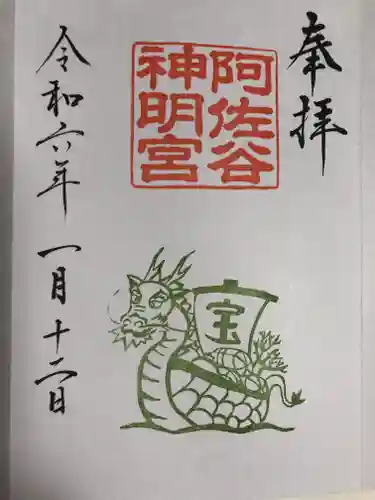 奉拝
阿佐谷
神明宮
宝
令和六年 一月十二日